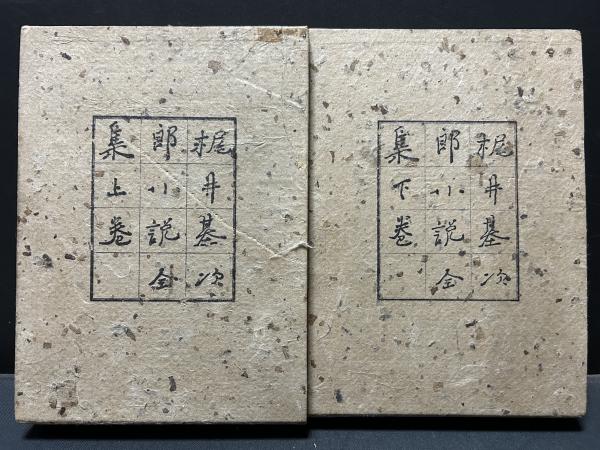 梶井基次
郎小説全
集上巻
梶井基次
郎小説全
集下巻